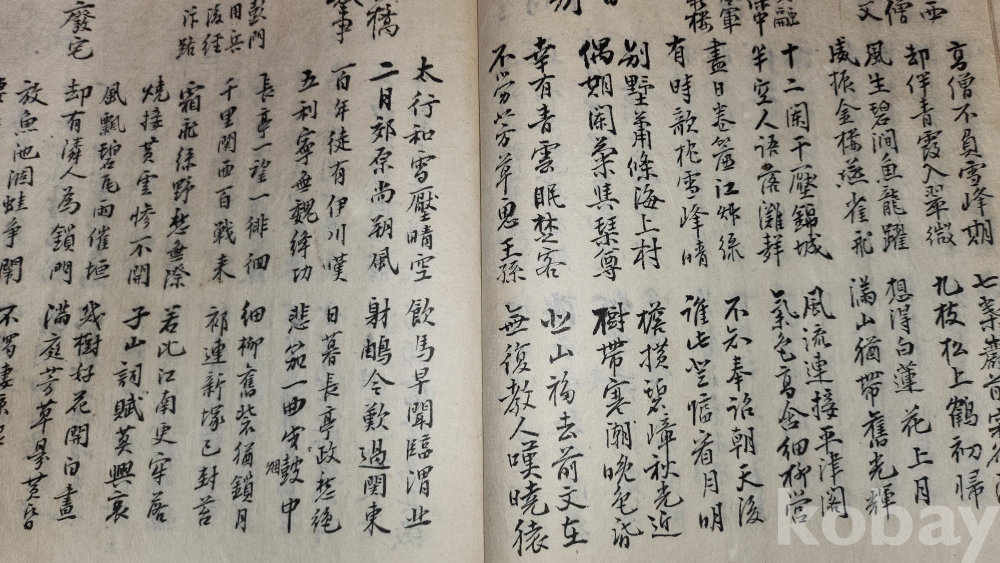 高僧不負雪峰期
却伴青霞入翠微
風生碧澗魚龍躍 九枝松上鶴初歸
威振金樓燕雀飛 想得白蓮花上月
滿山猶帶舊光輝
十二闌干壓錦城 風流連接平津閣
半空人語落灘聲 氣色高含細柳營
盡日卷簾江草綠 不知奉詔朝天後
有時欹枕雪峰晴 誰此登臨看月明
別墅蕭條海上村 橫碧嶂秋光近
偶期閑與琴尊 樹帶寒潮晚色昏
幸有青雲眠楚客 北山去前文在
不勞芳草思王孫 無復教人嘆曉猿
橋
太行和雪壓晴空 飲馬早聞臨渭北
二月郊原尚朔風 射鵰今歎過關東
百年徒有伊川嘆 日暮長亭政愁絕
五利寧無魏絳功 悲笳一曲戍中
彭門
用兵
後經
汴路
長亭一望一徘徊 細柳舊營猶鎖月
千里關西百戰來 祁連新塚已封苔
霜飛綠野愁無際 若比江南更牢落
燒接黃雲慘不開 子山詞賦莫興哀
廢宅
風飄碧瓦雨催垣 幾樹好花開白晝
却有隣人為鎖門 滿庭芳草易黃昏
放魚池涸蛙爭鬧
kobay